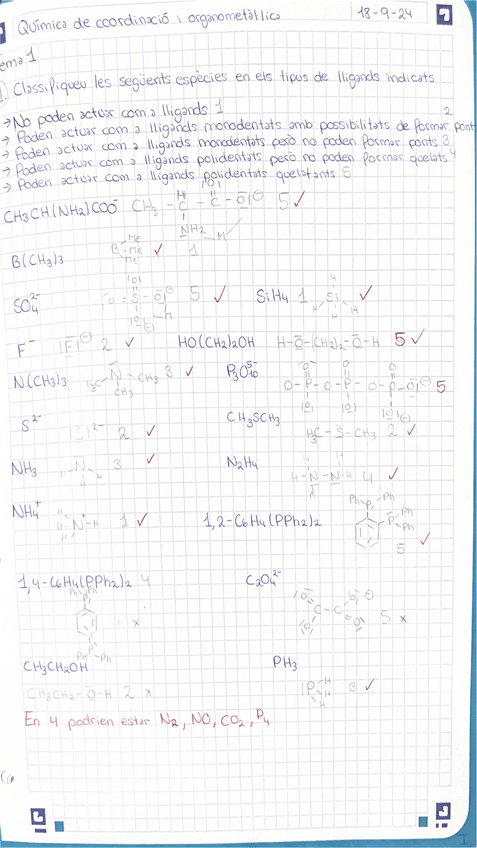 Química de coordinació i organometàl·lica 18-9-24
Tema 1
Classifiqueu les següents espècies en els tipus de lligands indicats
→ No poden actuar com a lligands 1
→ Poden actuar com a lligands monodentats amb possibilitats de formar ponts 2
→ Poden actuar com a lligands monodentats però no poden formar ponts 3
→ Poden actuar com a lligands polidentats però no poden formar quelats 4
→ Poden actuar com a lligands polidentats quelatants 5
CH3CH(NH2)COO⁻ 5 ✓
B(CH3)3 ✓ 1
SO4²⁻ 5 ✓ SiH4 1 ✓
F⁻ |F|⊖ 2 ✓ HO(CH2)2OH H-O-(CH2)2-O-H 5 ✓
N(CH3)3 3 ✓ P3O10⁵⁻ 5
S²⁻ |S|²⁻ 2 ✓ CH3SCH3 H3C-S-CH3 2 ✓
NH3 3 ✓ N2H4 4 ✓
NH4⁺ 1 ✓ 1,2-C6H4(PPh2)2 5 ✓
1,4-C6H4(PPh2)2 4 × C2O4²⁻ 5 ×
CH3CH2OH PH3
CH3CH2-O-H 2 × 3 ✓
En 4 podrien estar N2, NO, CO2, P4